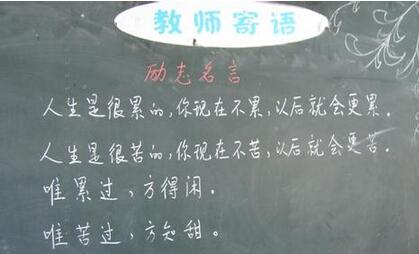 教师寄语
励志名言
人生是很累的,你现在不累,以后就会更累。
人生是很苦的,你现在不苦,以后就会更苦。
唯累过,方得闲。
唯苦过,方知甜。